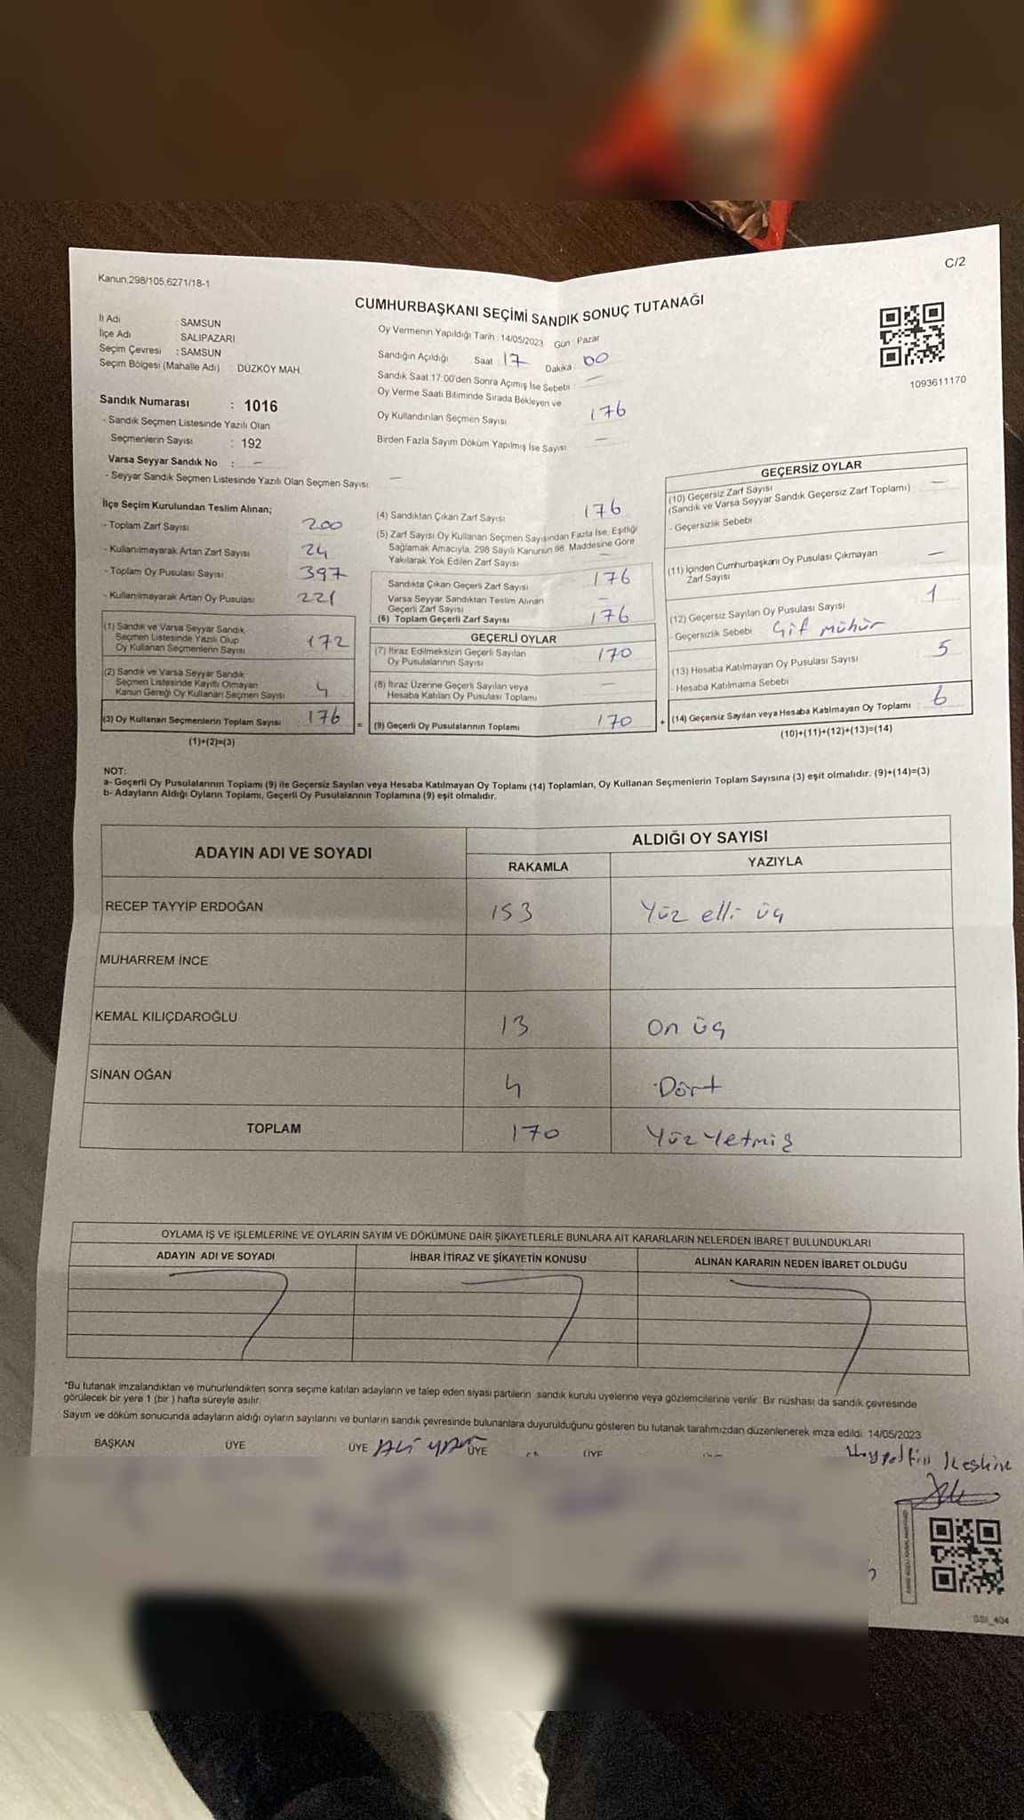 Kanun.298/105,6271/18-1
C/2
CUMHURBAŞKANI SEÇİMİ SANDIK SONUÇ TUTANAĞI
İl Adı : SAMSUN
İlçe Adı : SALIPAZARI
Seçim Çevresi : SAMSUN
Seçim Bölgesi (Mahalle Adı) DÜZKÖY MAH.
Sandık Numarası : 1016
- Sandık Seçmen Listesinde Yazılı Olan
Seçmenlerin Sayısı : 192
Varsa Seyyar Sandık No : -
- Seyyar Sandık Seçmen Listesinde Yazılı Olan Seçmen Sayısı -
Oy Vermenin Yapıldığı Tarih : 14/05/2023 Gün : Pazar
Sandığın Açıldığı Saat : 17 Dakika : 00
Sandık Saat 17:00'den Sonra Açımış İse Sebebi : -
Oy Verme Saati Bitiminde Sırada Bekleyen ve
Oy Kullandırılan Seçmen Sayısı 176
Birden Fazla Sayım Döküm Yapılmış İse Sayısı -
1093611170
İlçe Seçim Kurulundan Teslim Alınan;
- Toplam Zarf Sayısı 200
- Kullanılmayarak Artan Zarf Sayısı 24
- Toplam Oy Pusulası Sayısı 397
- Kullanılmayarak Artan Oy Pusulası 221
(1) Sandık ve Varsa Seyyar Sandık
Seçmen Listesinde Yazılı Olup
Oy Kullanan Seçmenlerin Sayısı 172
(2) Sandık ve Varsa Seyyar Sandık
Seçmen Listesinde Kayıtlı Olmayan
Kanun Gereği Oy Kullanan Seçmen Sayısı 4
(3) Oy Kullanan Seçmenlerin Toplam Sayısı 176
(1)+(2)=(3)
(4) Sandıktan Çıkan Zarf Sayısı 176
(5) Zarf Sayısı Oy Kullanan Seçmen Sayısından Fazla İse, Eşitliği
Sağlamak Amacıyla, 298 Sayılı Kanunun 98. Maddesine Göre
Yakılarak Yok Edilen Zarf Sayısı -
Sandıkta Çıkan Geçerli Zarf Sayısı 176
Varsa Seyyar Sandıktan Teslim Alınan
Geçerli Zarf Sayısı -
(6) Toplam Geçerli Zarf Sayısı 176
GEÇERLİ OYLAR
(7) İtiraz Edilmeksizin Geçerli Sayılan
Oy Pusulalarının Sayısı 170
(8) İtiraz Üzerine Geçerli Sayılan veya
Hesaba Katılan Oy Pusulası Toplamı -
= (9) Geçerli Oy Pusulalarının Toplamı 170 +
GEÇERSİZ OYLAR
(10) Geçersiz Zarf Sayısı -
(Sandık ve Varsa Seyyar Sandık Geçersiz Zarf Toplamı)
- Geçersizlik Sebebi
(11) İçinden Cumhurbaşkanı Oy Pusulası Çıkmayan
Zarf Sayısı -
(12) Geçersiz Sayılan Oy Pusulası Sayısı 1
- Geçersizlik Sebebi Çift mühür
(13) Hesaba Katılmayan Oy Pusulası Sayısı 5
- Hesaba Katılmama Sebebi
(14) Geçersiz Sayılan veya Hesaba Katılmayan Oy Toplamı 6
(10)+(11)+(12)+(13)=(14)
NOT:
a- Geçerli Oy Pusulalarının Toplamı (9) ile Geçersiz Sayılan veya Hesaba Katılmayan Oy Toplamı (14) Toplamları, Oy Kullanan Seçmenlerin Toplam Sayısına (3) eşit olmalıdır. (9)+(14)=(3)
b- Adayların Aldığı Oyların Toplamı, Geçerli Oy Pusulalarının Toplamına (9) eşit olmalıdır.
ADAYIN ADI VE SOYADI
ALDIĞI OY SAYISI
RAKAMLA YAZIYLA
RECEP TAYYİP ERDOĞAN 153 Yüz elli üç
MUHARREM İNCE
KEMAL KILIÇDAROĞLU 13 On üç
SİNAN OĞAN 4 Dört
TOPLAM 170 Yüz Yetmiş
OYLAMA İŞ VE İŞLEMLERİNE VE OYLARIN SAYIM VE DÖKÜMÜNE DAİR ŞİKAYETLERLE BUNLARA AİT KARARLARIN NELERDEN İBARET BULUNDUKLARI
ADAYIN ADI VE SOYADI İHBAR İTİRAZ VE ŞİKAYETİN KONUSU ALINAN KARARIN NEDEN İBARET OLDUĞU
*Bu tutanak imzalandıktan ve mühürlendikten sonra seçime katılan adayların ve talep eden siyasi partilerin sandık kurulu üyelerine veya gözlemcilerine verilir. Bir nüshası da sandık çevresinde
görülecek bir yere 1 (bir ) hafta süreyle asılır.
Sayım ve döküm sonucunda adayların aldığı oyların sayılarını ve bunların sandık çevresinde bulunanlara duyurulduğunu gösteren bu tutanak tarafımızdan düzenlenerek imza edildi. 14/05/2023
BAŞKAN ÜYE ÜYE ÜYE ÜYE